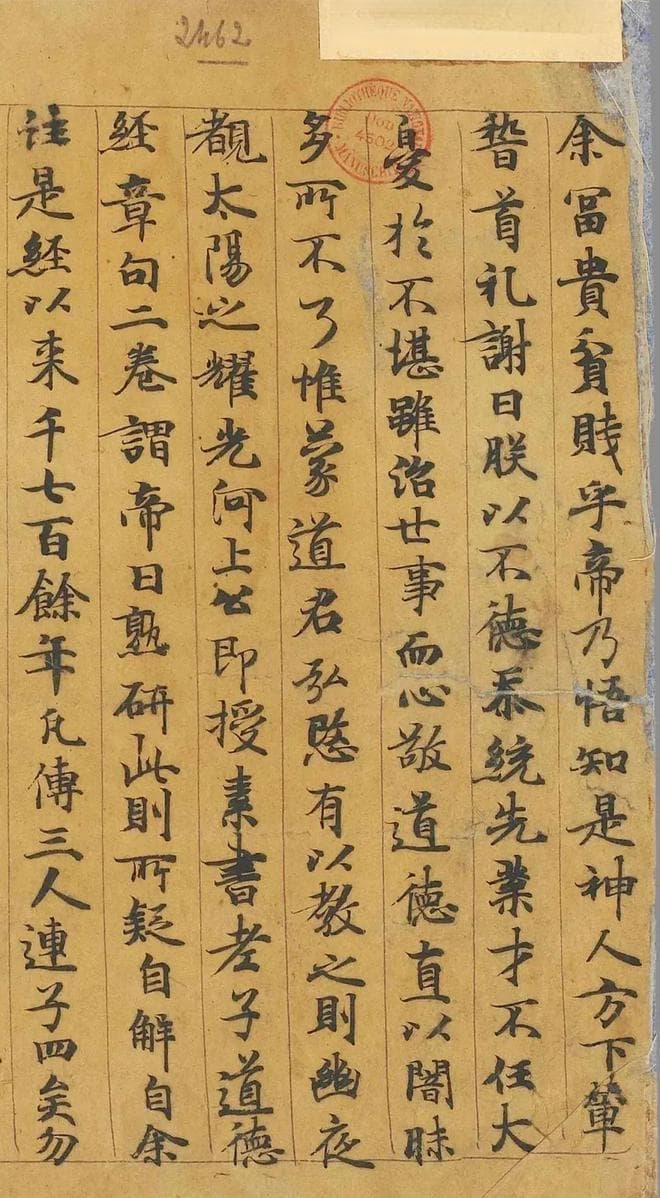 2462
余冨貴貧賤乎帝乃悟知是神人方下輦
稽首礼謝曰朕以不徳忝統先業才不任大
憂於不堪雖治世事而心敬道徳直以闇昧
多所不了惟蒙道君弘愍有以教之則幽夜
覩太陽之耀光河上公即授素書老子道徳
経章句二巻謂帝曰熟研此則所疑自解自余
註是経以来千七百餘年凢傳三人連子四矣勿
BIBLIOTHÈQUE